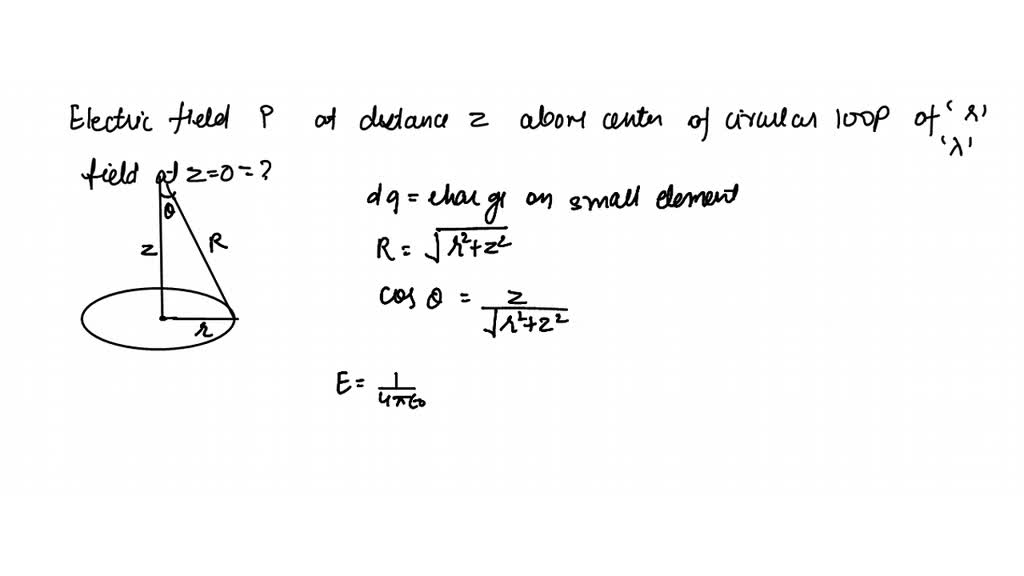 Electric field P at distance z above center of circular loop of 'r'
'λ'
field at z=0=?
dq = charge on small element
θ
z
R
R = √r²+z²
cos θ = z / √r²+z²
r
E = 1 / 4πε₀